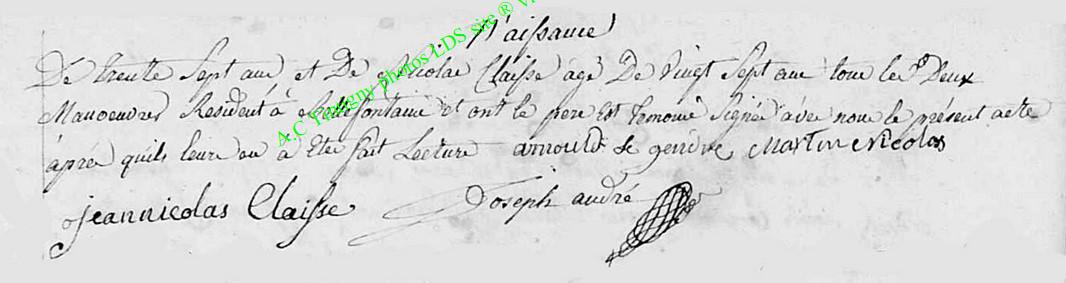 Naissance
De trente Sept ans et De Nicolas Claisse agé De Vingt Sept ans tous les Deux
Manoeuvres Resident à Bellefontaine et ont le pere Est temoins Signée avec nous le présent acte
àprès quils leurs en à Eté fait Lecture arnould le gendre Martin Nicolas
jeannicolas Claisse Joseph andré
A.C photos LDS site ®